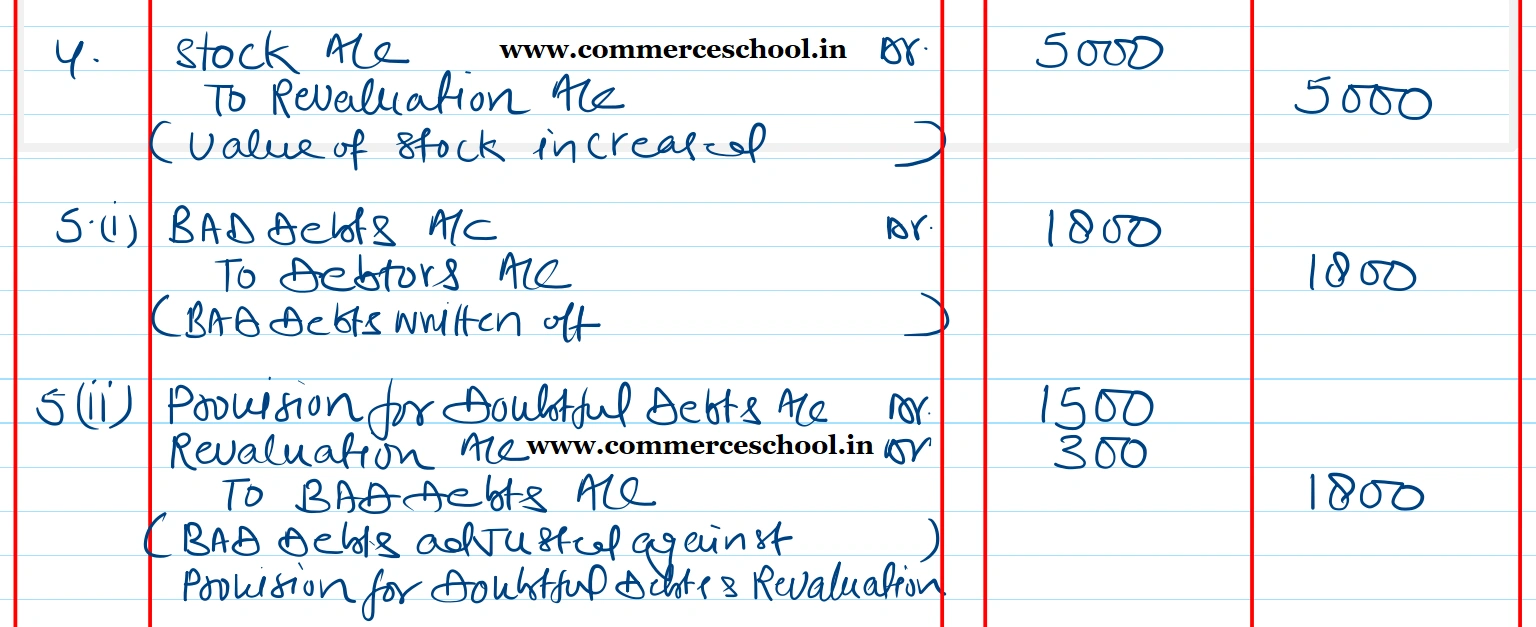 4. Stock A/c www.commerceschool.in Dr. 5000
To Revaluation A/c 5000
(Value of stock increased)
5.(i) BAD Debts A/C Dr. 1800
To Debtors A/c 1800
(BAD Debts written off)
5(ii) Provision for Doubtful Debts A/c Dr. 1500
Revaluation A/c www.commerceschool.in Dr 300
To BAD Debts A/c 1800
(BAD Debts adjusted against)
Provision for Doubtful Debts & Revaluation